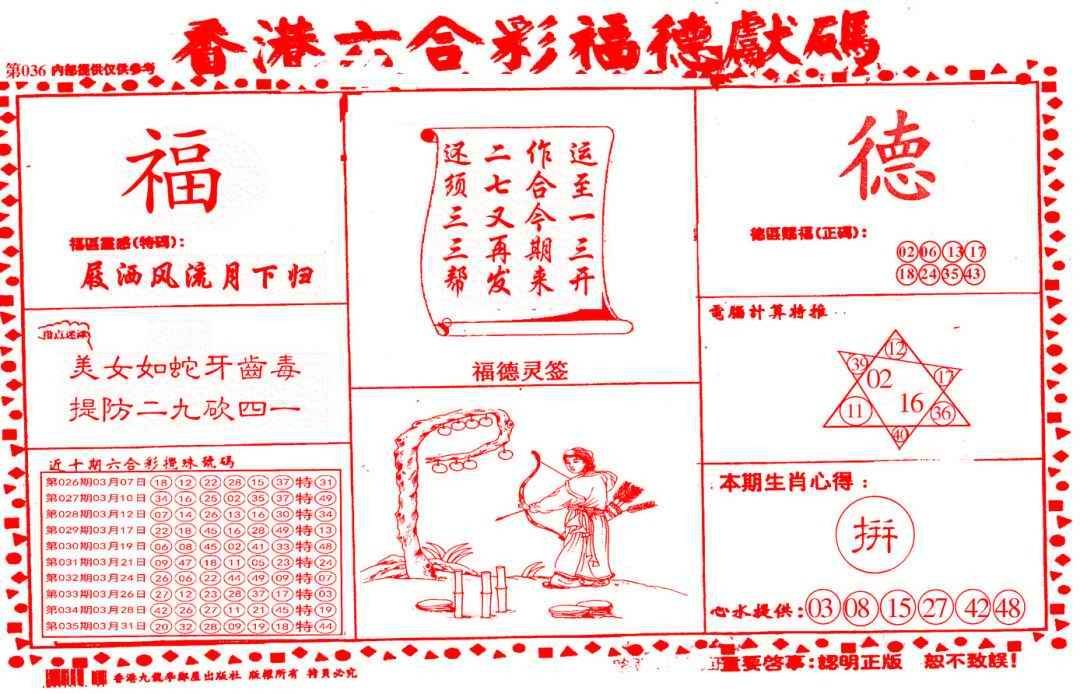 香港六合彩福德獻碼
第036 内部提供仅供参考
福
福區靈感(特碼):
屐洒风流月下归
指点迷津
美女如蛇牙齒毒
提防二九砍四一
近十期六合彩攪珠號碼
第026期03月07日 18 12 22 28 15 37 特 31
第027期03月10日 34 16 25 02 35 37 特 49
第028期03月12日 07 14 26 13 16 30 特 34
第029期03月17日 22 18 45 16 28 49 特 13
第030期03月19日 06 08 45 02 41 33 特 48
第031期03月21日 09 47 18 11 05 23 特 24
第032期03月24日 26 06 22 44 49 09 特 07
第033期03月26日 27 12 23 28 37 17 特 03
第034期03月28日 42 26 27 11 21 45 特 19
第035期03月31日 20 32 28 09 19 18 特 44
运至一三开
作合今期来
二七又再发
还须三三帮
福德灵签
德
德區賜福(正碼):
02 06 13 17
18 24 35 43
電腦計算特推
12
39 17
02
11 16 36
40
本期生肖心得:
拼
心水提供:03 08 15 27 42 48
香港九龍 出版社 版權所有 特員必究
重要啓事:認明正版 恕不致誤!